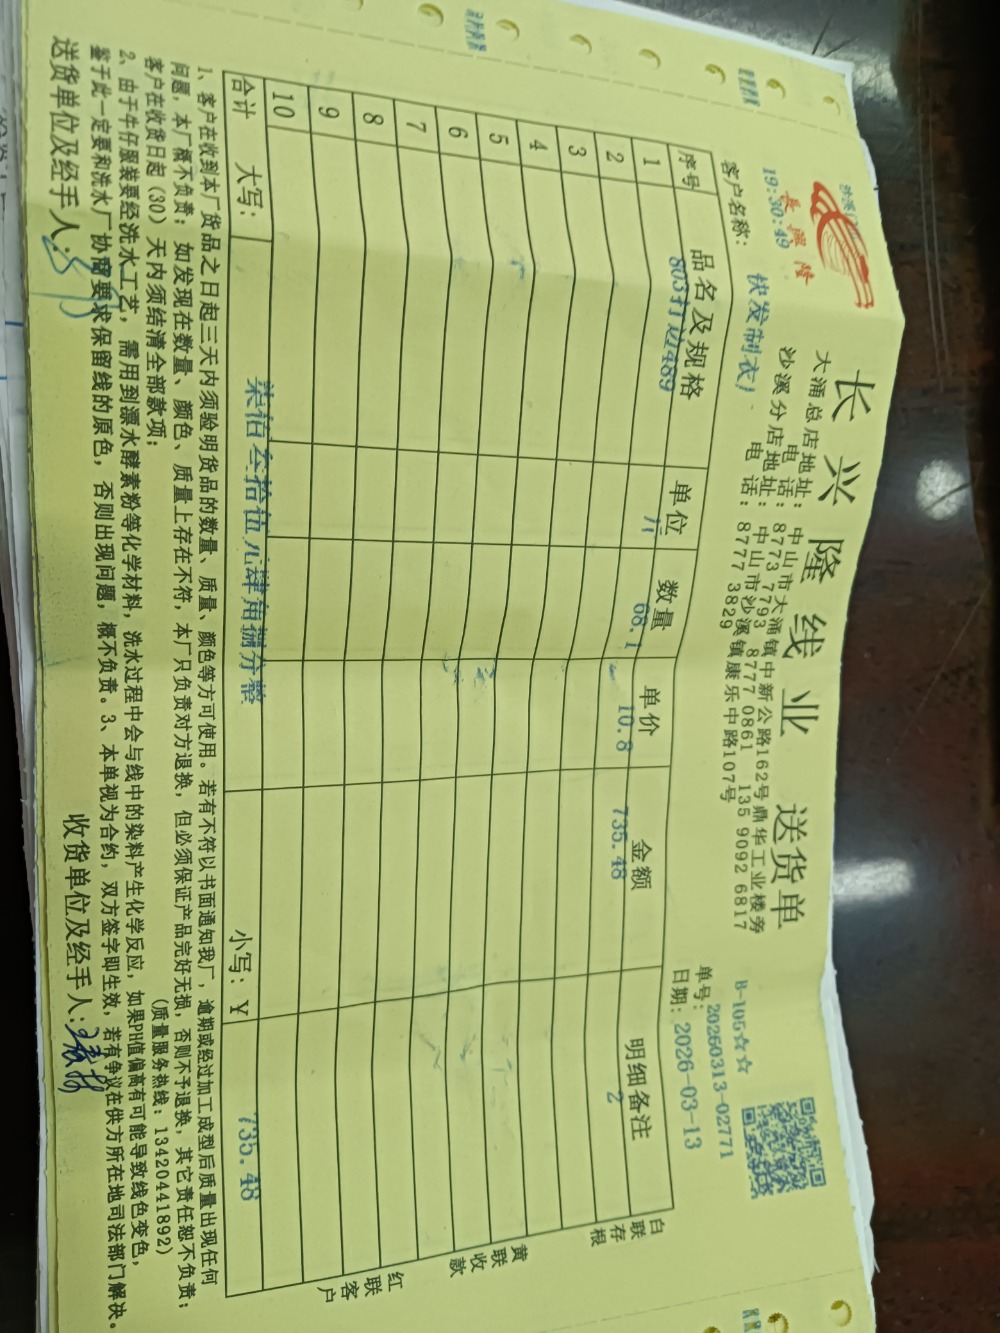 长兴隆线业 送货单
長興隆
19:30:49
大涌总店地址: 中山市大涌镇中新公路162号鼎华工业楼旁
电话: 8773 7793 8777 0861 135 9092 6817
沙溪分店地址: 中山市沙溪镇康乐中路107号
电话: 8777 3829
B-105☆☆
单号: 20260313-02771
客户名称: 快发制衣厂
日期: 2026-03-13
序号 品名及规格 单位 数量 单价 金额 明细备注
1 803打边489 斤 68.1 10.8 735.48 2
2
3
4
5
6
7
8
9
10
合计 大写: 柒佰叁拾伍元肆角捌分整 小写: ¥ 735.48
白联存根
黄联收款
红联客户
1、客户在收到本厂货品之日起三天内须验明货品的数量、质量、颜色等方可使用。若有不符以书面通知我厂,逾期或经过加工成型后质量出现任何
问题,本厂概不负责;如发现在数量、颜色、质量上存在不符,本厂只负责对方退换,但必须保证产品完好无损,否则不予退换,其它责任恕不负责;
客户在收货日起(30)天内须结清全部款项; (质量服务热线:13420441892)
2、由于牛仔服装要经洗水工艺,需用到漂水酵素粉等化学材料,洗水过程中会与线中的染料产生化学反应,如果PH值偏高有可能导致线色变色,
鉴于此一定要和洗水厂协商要求保留线的原色,否则出现问题,概不负责。3、本单视为合约,双方签字即生效,若有争议在供方所在地司法部门解决。
送货单位及经手人: 收货单位及经手人: